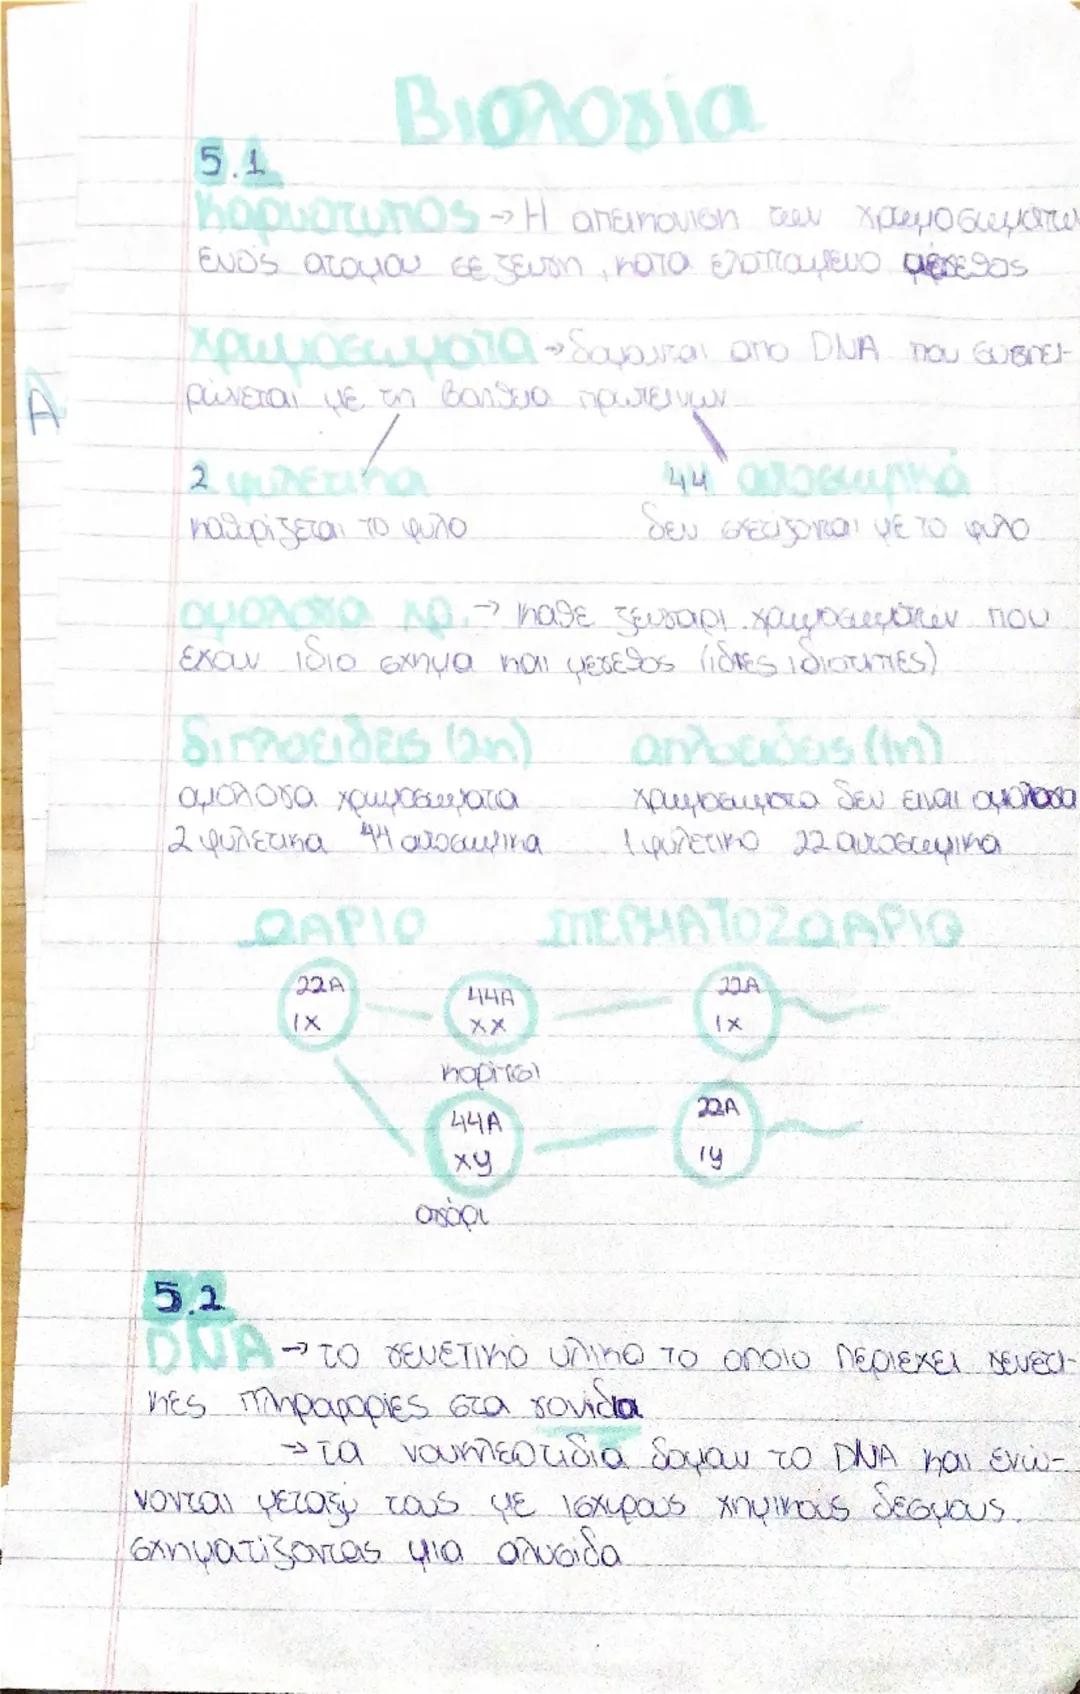 Βιολογία
5.1
Καρυότυπος → Η απεικόνιση των χρωμοσωμάτων
ενός ατόμου σε ζεύγη, κατά ελαττούμενο μέγεθος
Χρωμοσώματα → δομούνται από DNA που συσπει-
ρώνεται με τη βοήθεια πρωτεινών
A
2 φυλετικά 44 αυτοσωμικά
καθορίζεται το φύλο δεν σχετίζονται με το φύλο
ομόλογα χρ. → καθε ζευγάρι χρωμοσωμάτων που
έχουν ίδιο σχήμα και μέγεθος (ίδιες ιδιότητες)
διπλοειδείς (2n) απλοειδείς (1n)
ομόλογα χρωμοσώματα χρωμοσώματα δεν είναι ομόλογα
2 φυλετικα 44 αυτοσωμικα 1 φυλετικο 22 αυτοσωμικα
ΩΑΡΙΟ ΣΠΕΡΜΑΤΟΖΩΑΡΙΟ
22A 44A 22A
1X XX 1X
κορίτσι
44A 22A
xy 1y
αγόρι
5.2
DNA → το γενετικό υλικό το οποίο περιέχει γενετι-
κές πληροφορίες στα γονίδια
→ τα νουκλεοτίδια δομουν το DNA και ενώ-
νονται μεταξύ τους με ισχυρους χημικους δεσμους.
σχηματίζοντας μια αλυσίδα